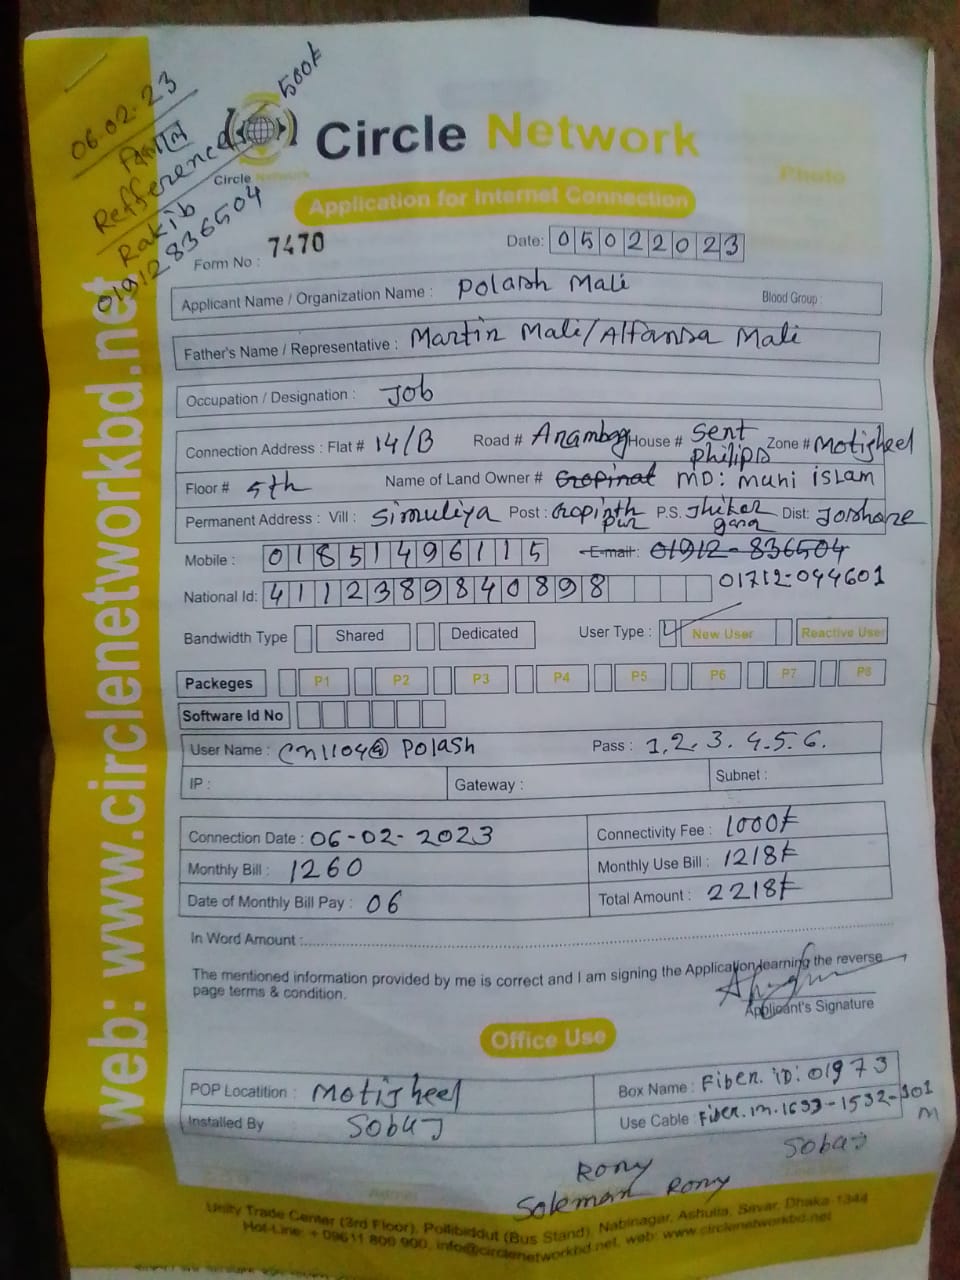 06.02.23
500/-
Refference
Rakib
01912836504
Circle Network
Circle Network
Photo
Application for Internet Connection
Form No : 7470 Date: 05022023
Applicant Name / Organization Name : Polash Mali Blood Group :
Father's Name / Representative : Martin Mali/Alfansa Mali
Occupation / Designation : Job
Connection Address : Flat # 14/B Road # Arambag House # Sent Philips Zone # Motijheel
Floor # 5th Name of Land Owner # Gopinat MD: Muhi islam
Permanent Address : Vill : Simuliya Post : Gopinth pur P.S. Jhiker gara Dist: Joshore
Mobile : 01851496115 E-mail: 01912-836504
National Id: 4112389840898 01712-044601
Bandwidth Type Shared Dedicated User Type : New User Reactive User
Packeges P1 P2 P3 P4 P5 P6 P7 P8
Software Id No
User Name : cn1104@ Polash Pass : 1.2.3.4.5.6.
IP : Gateway : Subnet :
Connection Date : 06-02-2023 Connectivity Fee : 1000/-
Monthly Bill : 1260 Monthly Use Bill : 1218/-
Date of Monthly Bill Pay : 06 Total Amount : 2218/-
In Word Amount :
The mentioned information provided by me is correct and I am signing the Application learning the reverse
page terms & condition.
Applicant's Signature
Office Use
POP Locatition : Motijheel Box Name : Fiber. iD: 01973
Installed By Sobuj Use Cable : Fiber.m.1633-1532-101 m
Sobuj
Rony
Soleman Rony
Unity Trade Center (3rd Floor), Pollibiddut (Bus Stand), Nabinagar, Ashulia, Savar, Dhaka-1344
Hot-Line: + 09611 800 900, info@circlenetworkbd.net, web: www.circlenetworkbd.net
web: www.circlenetworkbd.net